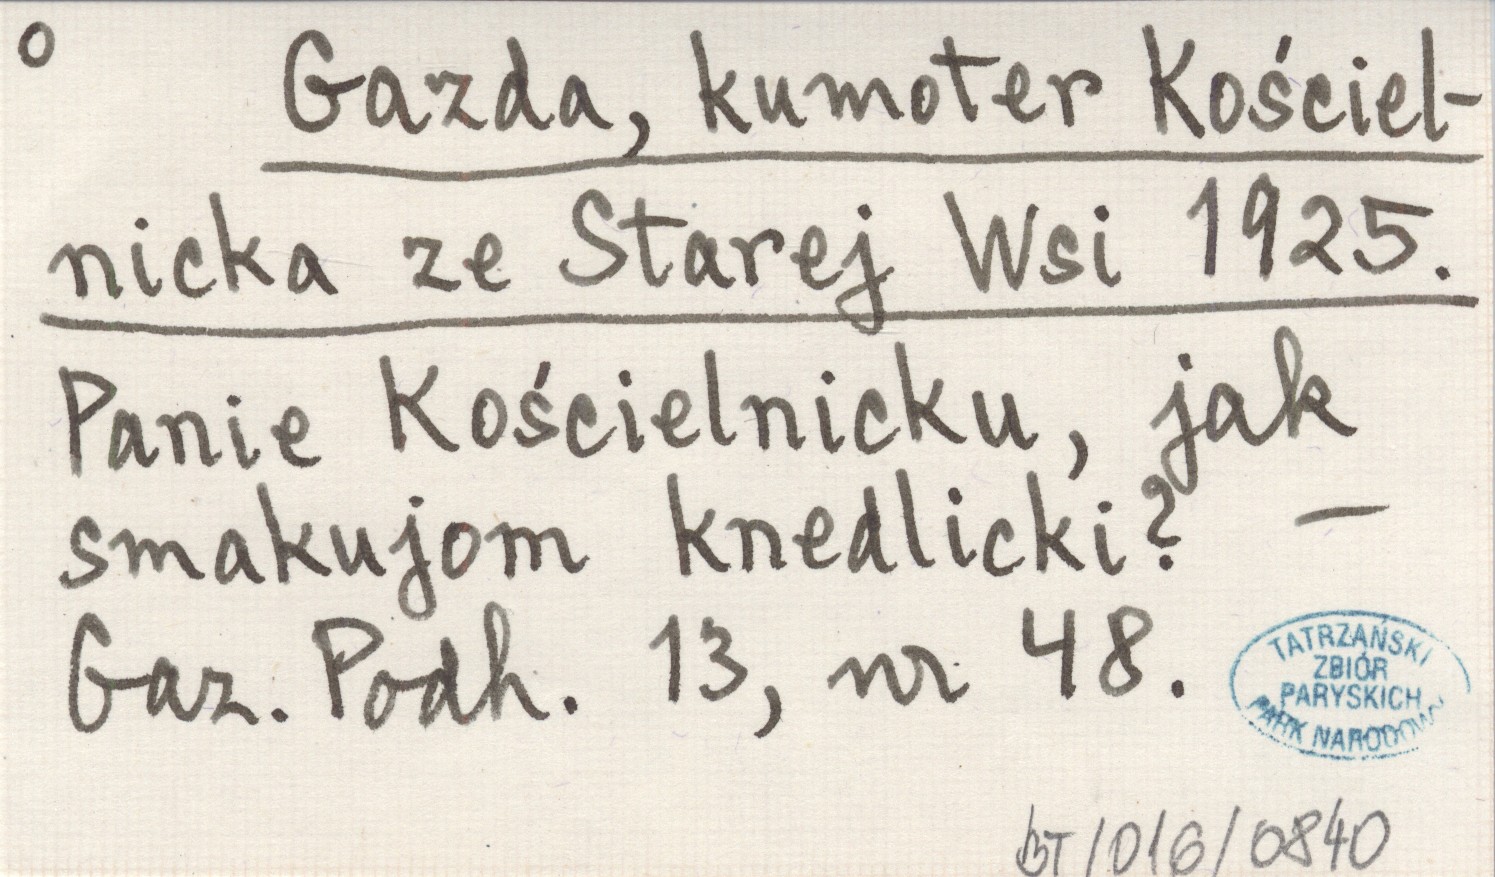 o Gazda, kumoter Kościel-
nicka ze Starej Wsi 1925.
Panie Kościelnicku, jak
smakujom knedlicki? —
Gaz. Podh. 13, nr 48.
TATRZAŃSKI
ZBIÓR
PARYSKICH
PARK NARODOWY
BT/016/0840